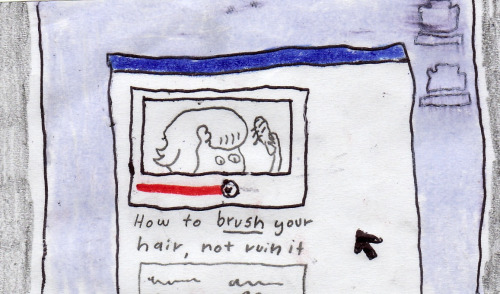 How to brush your
hair, not ruin it